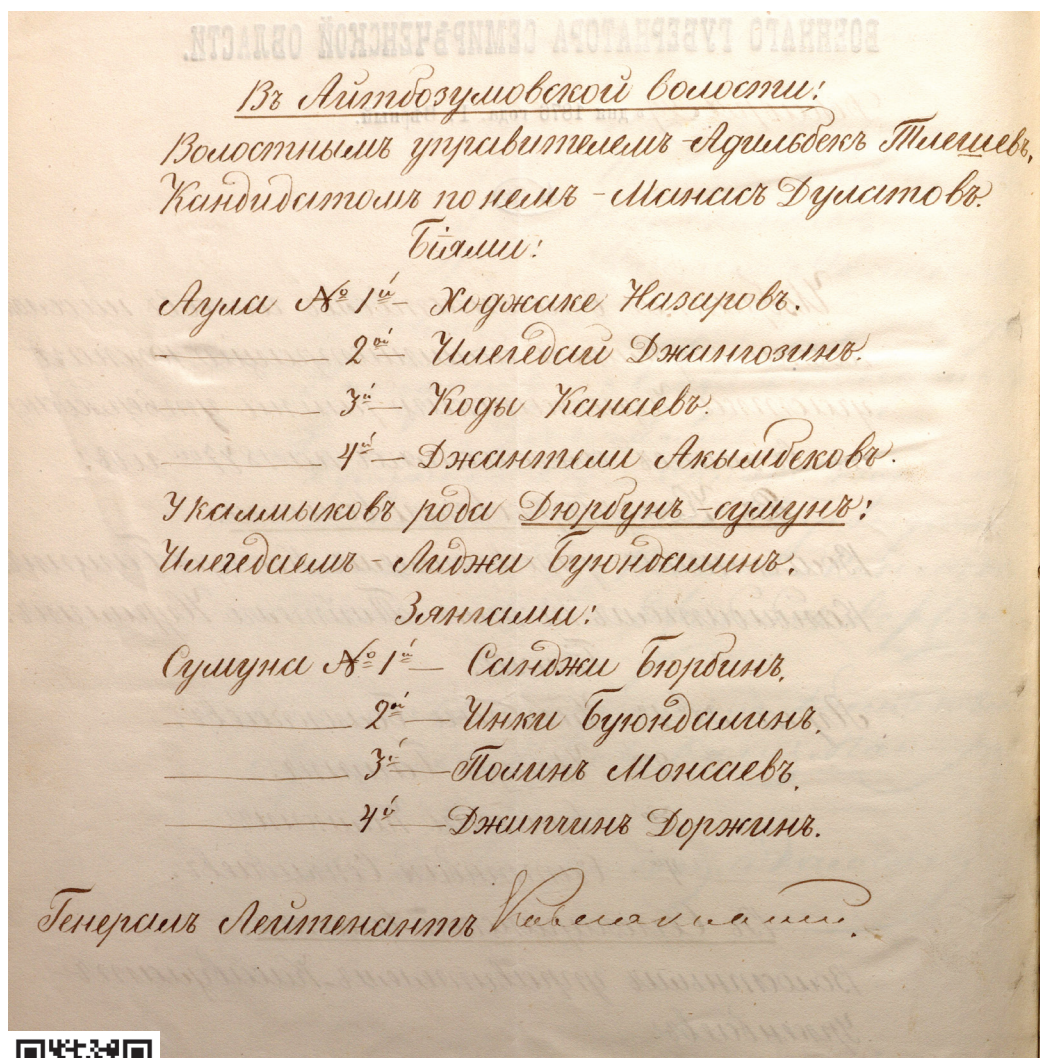 Въ Айтбозумовской волости:
Волостнымъ управителемъ - Адильбекъ Тлешевъ,
Кандидатомъ по немъ - Манасъ Дулатовъ.
Біями:
Аула № 1й — Ходжаке Назаровъ.
2ой — Илегедай Джангозинъ.
3й — Коды Канаевъ.
4й — Джантели Акымбековъ.
У калмыковъ рода Дюрбунъ-сумунъ:
Илегедаемъ - Лиджи Буюндалинъ.
Зянгами:
Сумуна № 1й — Санджи Бюрбинъ,
2ой — Инки Буюндалинъ,
3й — Полинъ Монсаевъ,
4й — Джипчинъ Доржинъ.
Генералъ Лейтенантъ